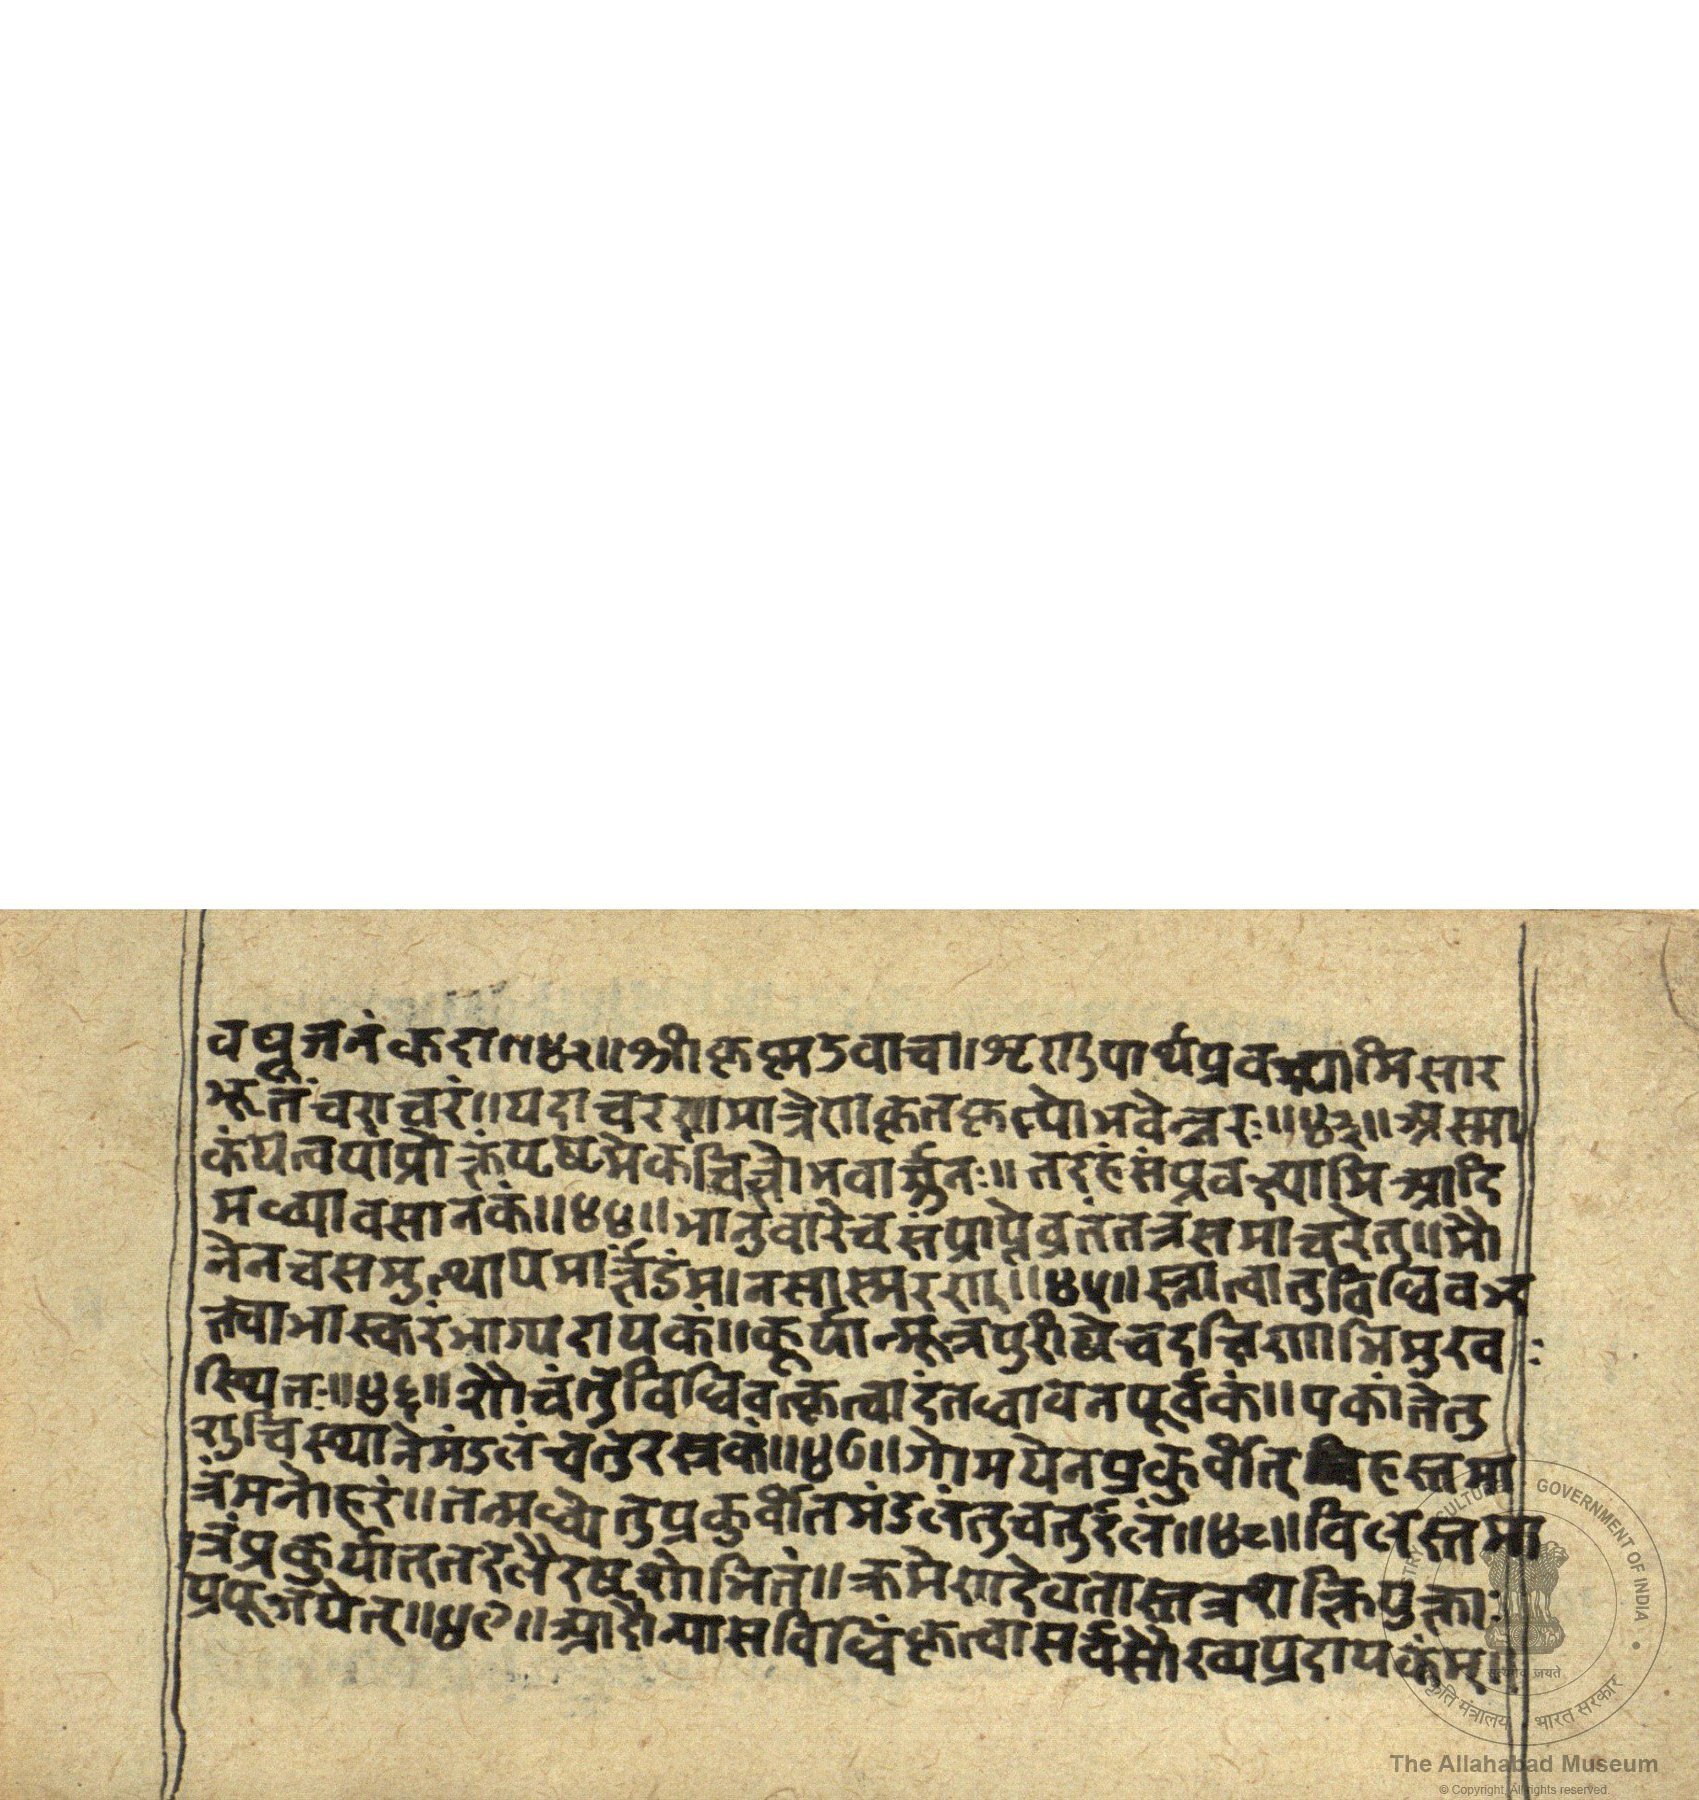 वपूजनं कदा॥४२॥श्रीकृष्णउवाच॥शृणुपार्थप्रवक्ष्यामिसार
भूतं चराचरं॥यदाचरणमात्रेणकृतकृत्योभवेन्नरः॥४३॥अस्मा
कं चित्तोभवार्जुनः॥तदहंसंप्रवक्ष्यामिआदि
मध्यावसानकं॥४४॥भानुवारेचसंप्राप्तेव्रतंतत्रसमाचरेत्॥मौ
नेनचसमुत्थाय मानसास्मरण॥४५॥स्नात्वातुविधिवभ
क्त्याभास्करंभाग्यदायकं॥कूर्यान्मूत्रपुरीषेचदक्षिणाभिमुखः
स्थितः॥४६॥शौचंतुविधिवत्कृत्वादंतधावनपूर्वकं॥एकांतेतु
शुचिस्थानेमंडलंचतुरस्रकं॥४७॥गोमयेनप्रकुर्वीत् हस्तमा
त्रंमनोहरं॥तन्मध्येतुप्रकुर्वीतमंडलंतुचतुर्दलं॥४८॥विलस्तमा
त्रंप्रकुर्यात्ततदलैरष्टशोभितं॥क्रमेणदेवतास्तत्रशक्तियुक्ताः
प्रपूजयेत्॥४९॥आदौन्यासविधिंकृत्वासर्वसौख्यप्रदायकंम्॥
The Allahabad Museum
© Copyright, All rights reserved.
GOVERNMENT OF INDIA
सत्यमेव जयते
भारत सरकार